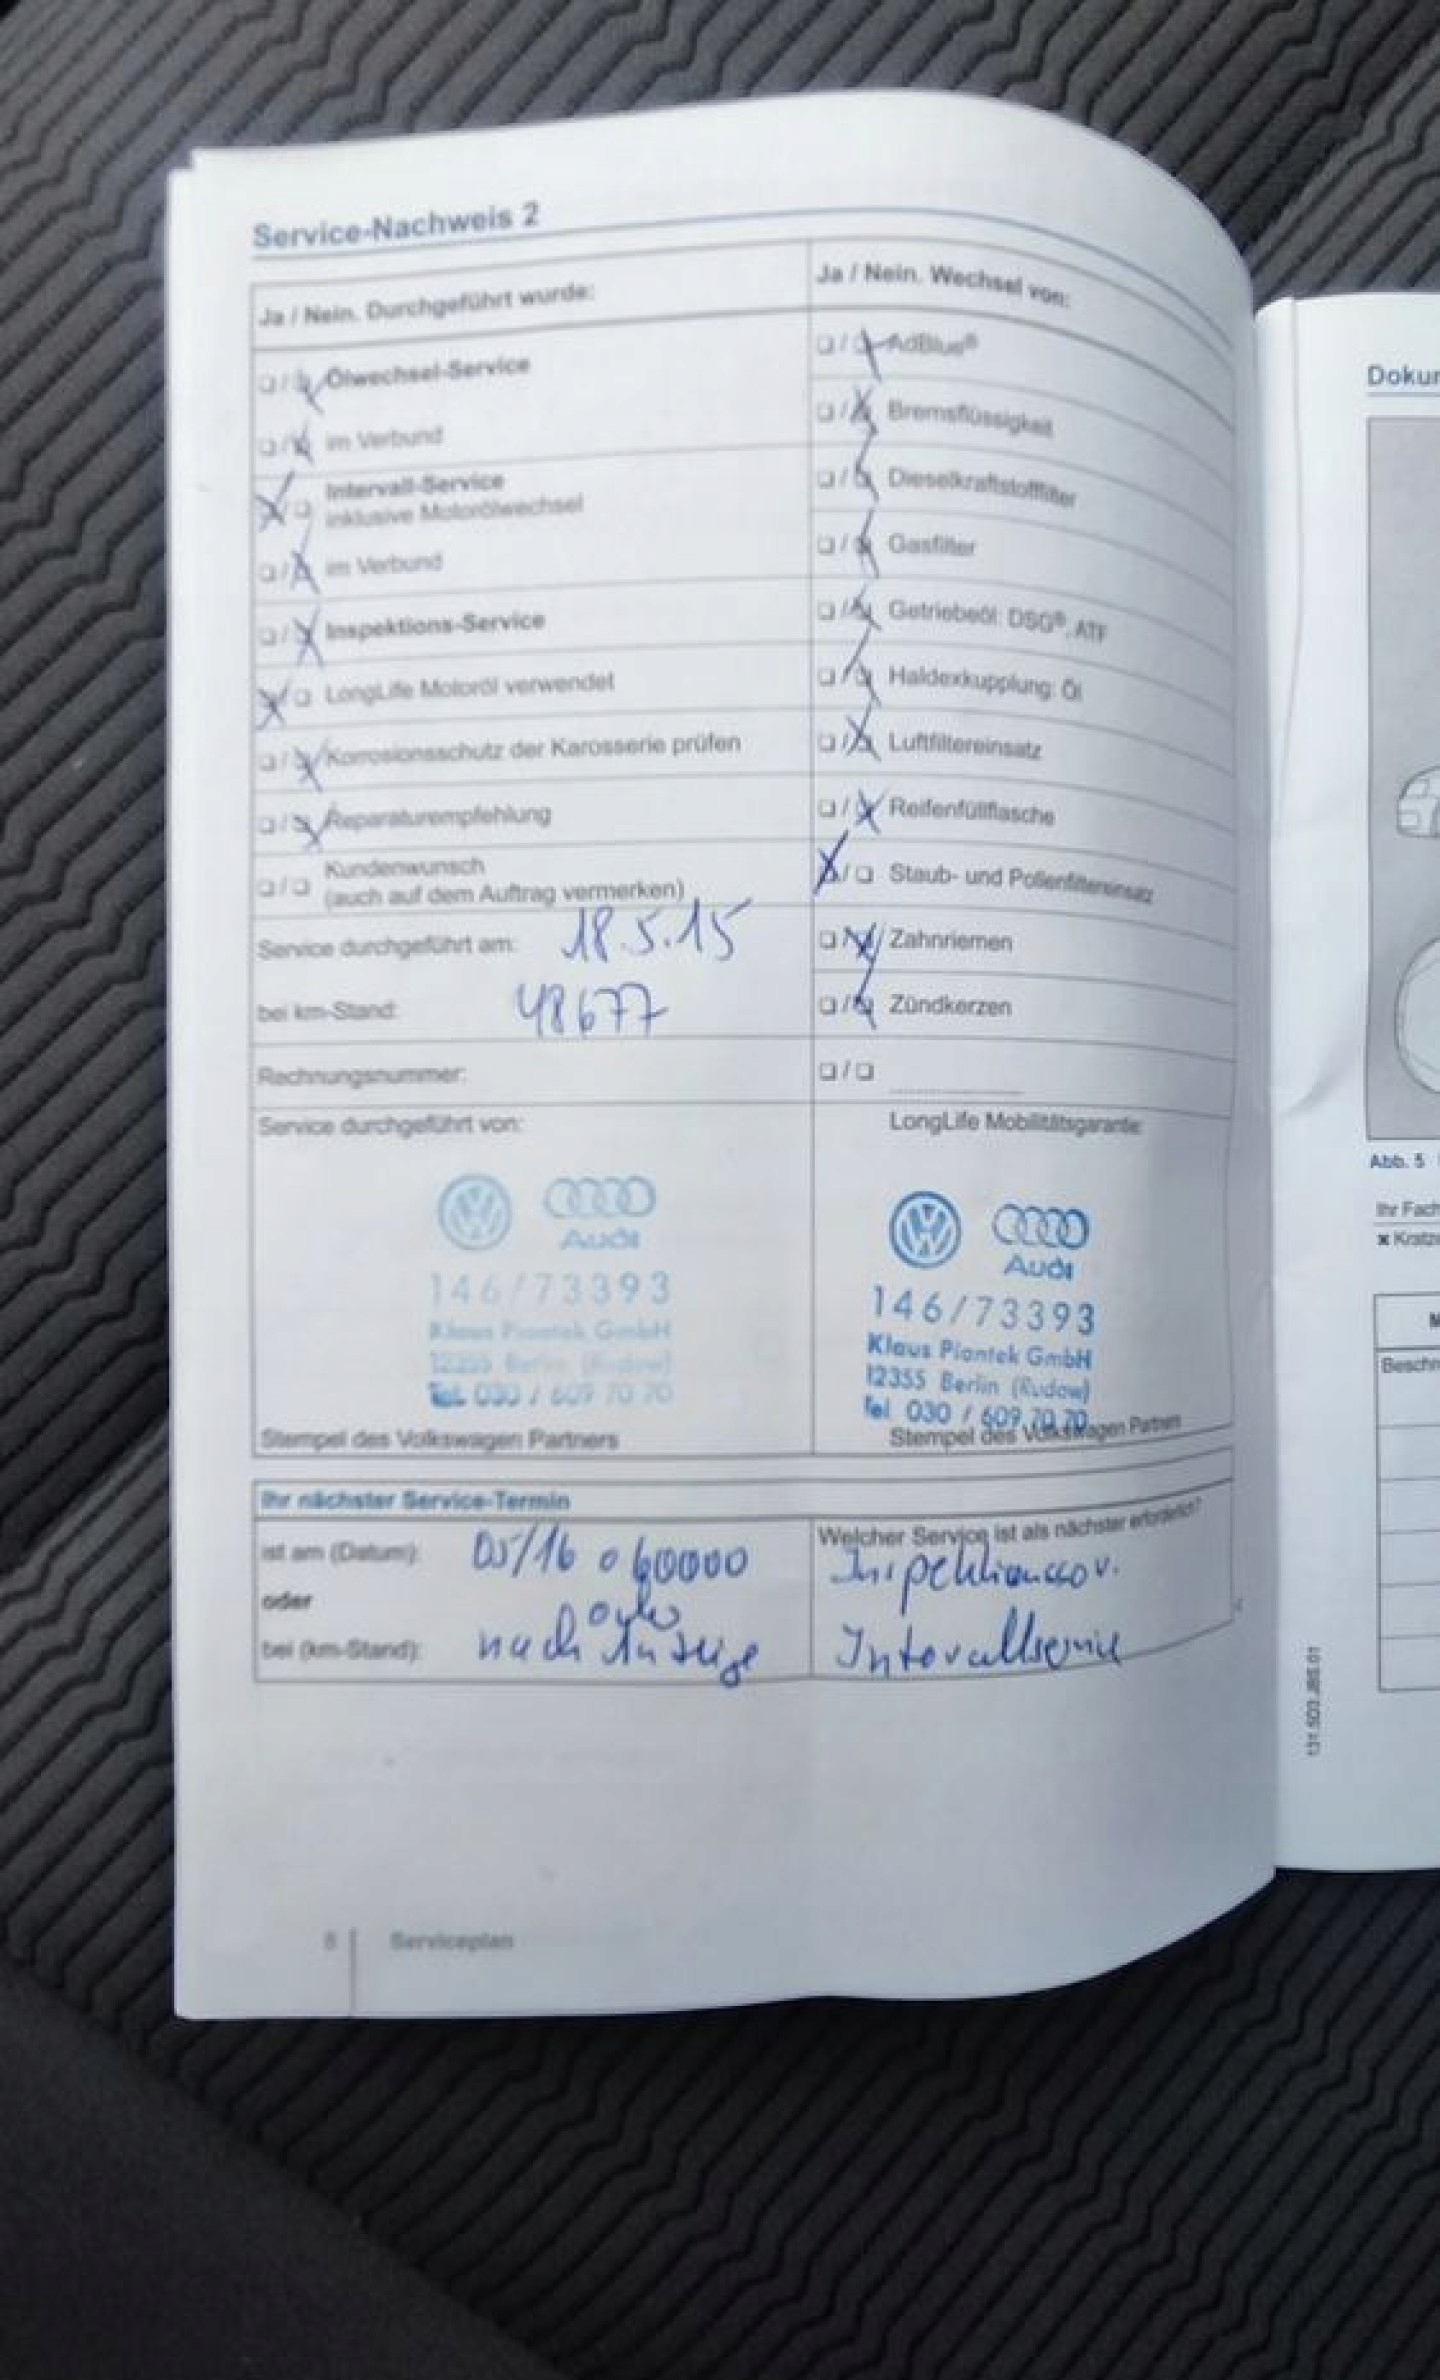 Service-Nachweis 2
Ja / Nein. Durchgeführt wurde:
❑ / ❑ Ölwechsel-Service
❑ / ❑ im Verbund
❑ / ❑ Intervall-Service
inklusive Motorölwechsel
❑ / ❑ im Verbund
❑ / ❑ Inspektions-Service
❑ / ❑ LongLife Motoröl verwendet
❑ / ❑ Korrosionsschutz der Karosserie prüfen
❑ / ❑ Reparaturempfehlung
❑ / ❑ Kundenwunsch
(auch auf dem Auftrag vermerken)
Service durchgeführt am: 18.5.15
bei km-Stand: 48677
Rechnungsnummer:
Ja / Nein. Wechsel von:
❑ / ❑ AdBlue®
❑ / ❑ Bremsflüssigkeit
❑ / ❑ Dieselkraftstofffilter
❑ / ❑ Gasfilter
❑ / ❑ Getriebeöl: DSG®, ATF
❑ / ❑ Haldexkupplung: Öl
❑ / ❑ Luftfiltereinsatz
❑ / ❑ Reifenfüllflasche
❑ / ❑ Staub- und Pollenfiltereinsatz
❑ / ❑ Zahnriemen
❑ / ❑ Zündkerzen
❑ / ❑
Service durchgeführt von:
Audi
146/73393
Klaus Piontek GmbH
12355 Berlin (Rudow)
Tel 030 / 609 70 70
Stempel des Volkswagen Partners
LongLife Mobilitätsgarantie:
Audi
146/73393
Klaus Piontek GmbH
12355 Berlin (Rudow)
Tel 030 / 609 70 70
Stempel des Volkswagen Partners
Ihr nächster Service-Termin
ist am (Datum): 05/16 o 60000
oder
oder
bei (km-Stand): nach Anzeige
Welcher Service ist als nächster erforderlich?
Intervallservice
8 Serviceplan
Abb. 5
Ihr Fach
131.5D3.JBS.01